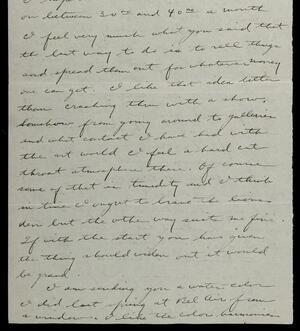 on between 30 00 and 40 00 a month
I feel very much what you said that
the best way to do is to sell things
and spread them out for whatever money
one can get. I like that idea better
than crashing thru with a show.
Somehow from going around to galleries
and what contact I have had with
the art world I feel a hard cut
throat atmosphere there. Of course
some of that is timidity and I think
in time I ought to brave the lions
den but the other way suits me fine.
If with the start you have given
the thing should widen out it would
be grand.
I am sending you a water color
I did last spring at Bel Air from
a window. I like the color harmonies